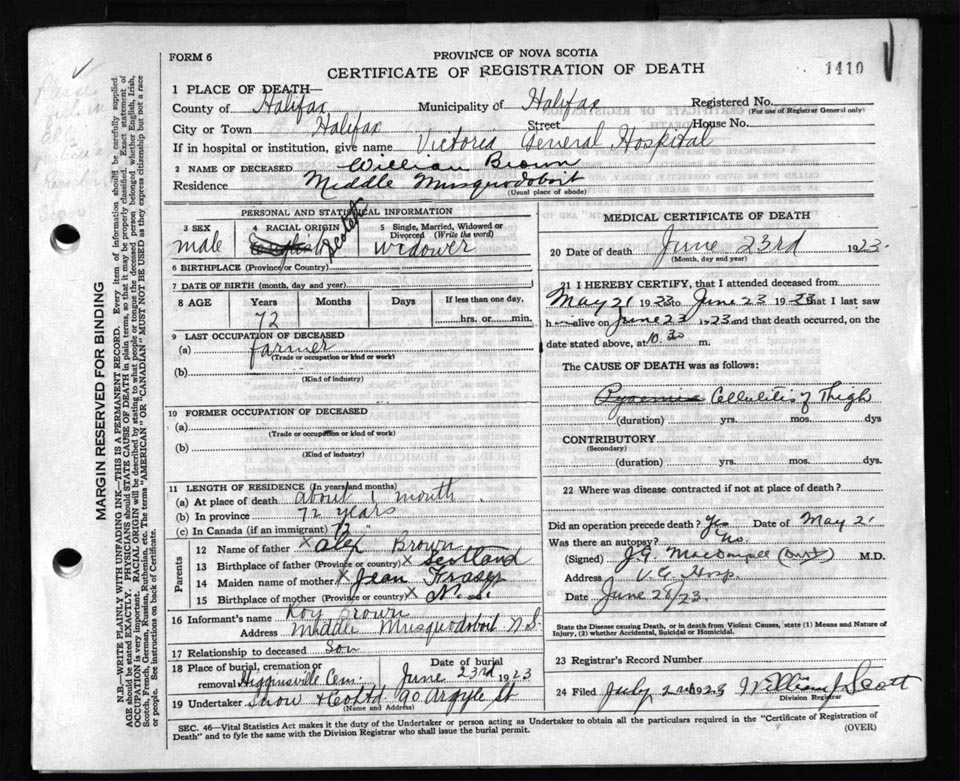 FORM 6
PROVINCE OF NOVA SCOTIA
CERTIFICATE OF REGISTRATION OF DEATH
1410
1 PLACE OF DEATH—
County of Halifax Municipality of Halifax Registered No.
(For use of Registrar General only)
City or Town Halifax Street House No.
If in hospital or institution, give name Victoria General Hospital
2 NAME OF DECEASED William Brown
Residence Middle Musquodoboit
(Usual place of abode)
PERSONAL AND STATISTICAL INFORMATION
3 SEX 4 RACIAL ORIGIN 5 Single, Married, Widowed or Divorced (Write the word)
male Scotch widower
6 BIRTHPLACE (Province or Country)
7 DATE OF BIRTH (month, day and year)
8 AGE Years Months Days If less than one day,
72 hrs. or min.
9 LAST OCCUPATION OF DECEASED
(a) farmer
(Trade or occupation or kind of work)
(b)
(Kind of industry)
10 FORMER OCCUPATION OF DECEASED
(a)
(Trade or occupation or kind of work)
(b)
(Kind of industry)
11 LENGTH OF RESIDENCE (In years and months)
(a) At place of death about 1 month
(b) In province 72 years
(c) In Canada (if an immigrant) 72 "
Parents
12 Name of father X Alex Brown
13 Birthplace of father (Province or country) X Scotland
14 Maiden name of mother X Jean Fraser
15 Birthplace of mother (Province or country) X N.S.
16 Informant's name Roy Brown
Address Middle Musquodoboit N.S.
17 Relationship to deceased Son
18 Place of burial, cremation or removal Higginsville Cem. Date of burial June 23rd 1923
19 Undertaker Snow & Co Ltd 90 Argyle St
(Name and Address)
MEDICAL CERTIFICATE OF DEATH
20 Date of death June 23rd 1923.
(Month, day and year)
21 I HEREBY CERTIFY, that I attended deceased from
May 21 1923 to June 23 1923 that I last saw
h alive on June 23 1923 and that death occurred, on the
date stated above, at 10.30 m.
The CAUSE OF DEATH was as follows:
Pyaemia Cellulitis of Thigh
(duration) yrs. mos. dys
CONTRIBUTORY
(Secondary)
(duration) yrs. mos. dys.
22 Where was disease contracted if not at place of death?
Did an operation precede death? Yes Date of May 21
Was there an autopsy? No.
(Signed) J.G. M.D.
Address V.G. Hosp.
Date June 28/23.
State the Disease causing Death, or in death from Violent Causes, state (1) Means and Nature of Injury, (2) whether Accidental, Suicidal or Homicidal.
23 Registrar's Record Number
24 Filed July 2 1923 William J Scott
Division Registrar
SEC. 46—Vital Statistics Act makes it the duty of the Undertaker or person acting as Undertaker to obtain all the particulars required in the "Certificate of Registration of
Death" and to fyle the same with the Division Registrar who shall issue the burial permit. (OVER)
MARGIN RESERVED FOR BINDING
N.B.—WRITE PLAINLY WITH UNFADING INK—THIS IS A PERMANENT RECORD. Every item of information should be carefully supplied.
AGE should be stated EXACTLY. PHYSICIANS should STATE CAUSE OF DEATH in plain terms, so that it may be properly classified. Exact statement of
OCCUPATION is very important. RACIAL ORIGIN will be described by stating to what people or tongue the deceased person belonged whether English, Irish,
Scotch, French, German, Russian, Ruthenian, etc. The terms "AMERICAN" OR "CANADIAN" MUST NOT BE USED as they express citizenship but not a race
or people. See instructions on back of Certificate.